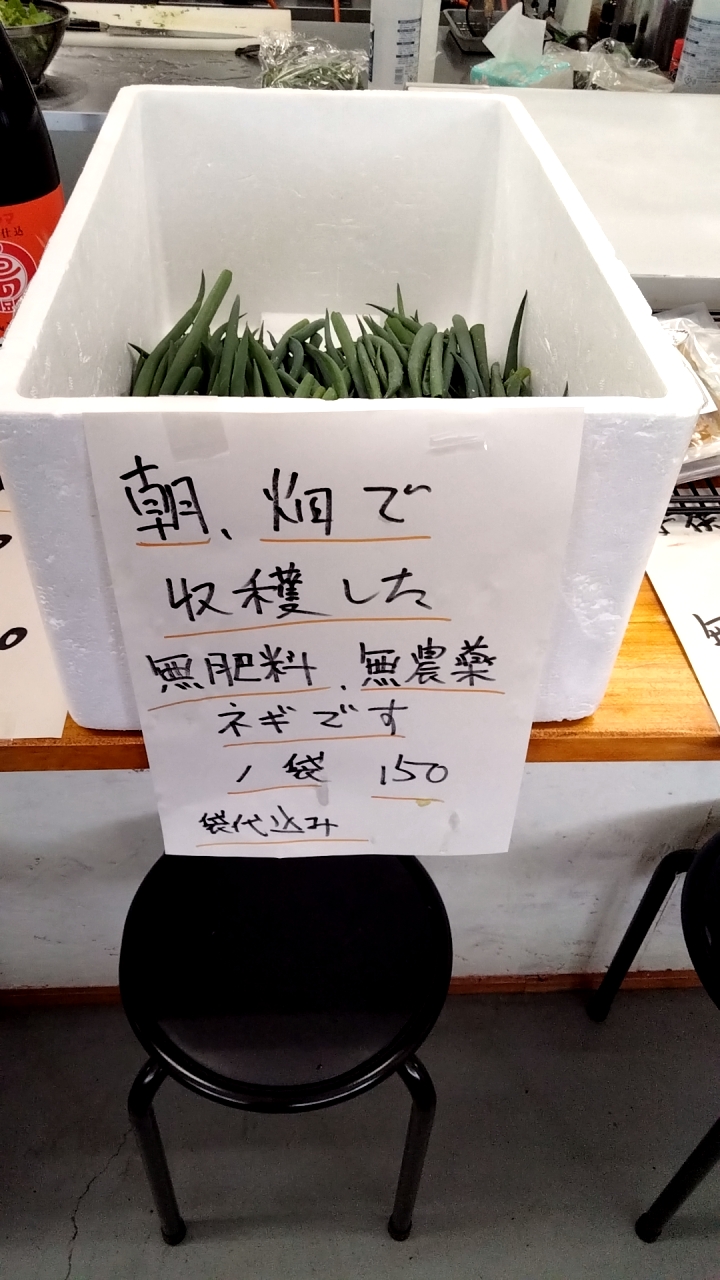 朝、畑で
収穫した
無肥料、無農薬
ネギです
1袋 150
袋代込み
仕込